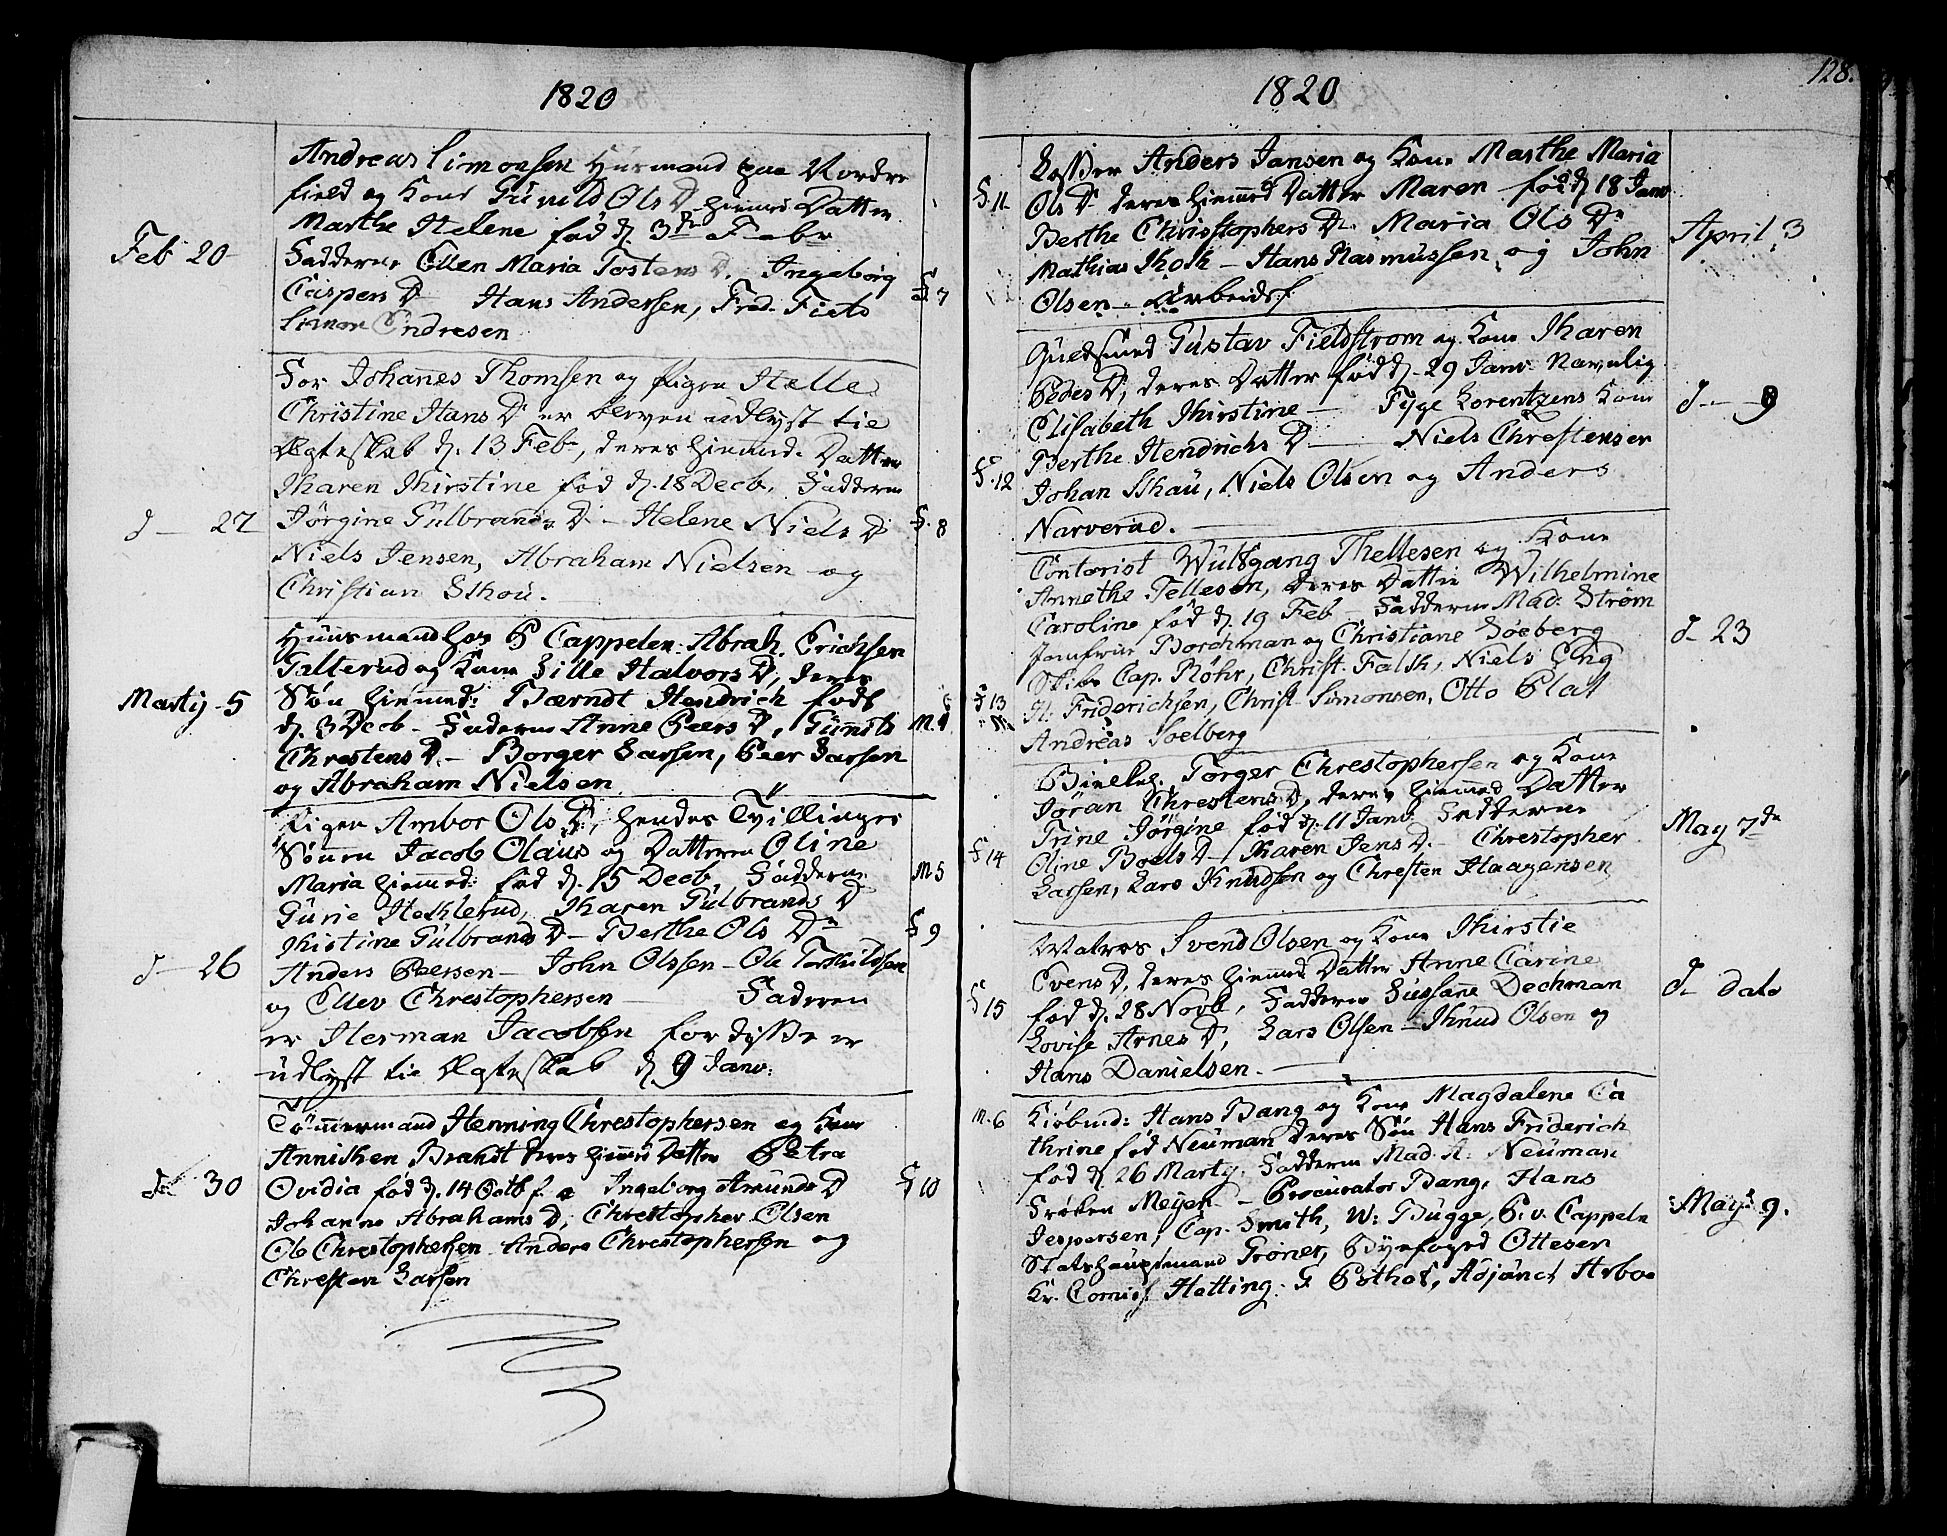 1820
Andreas Simonsen Huusmand paa Nordre
field og Kone Gunild Ols D. hiemmed. Datter
Marthe Helene fød d. 3die Febr
Feb 20
Fadderne Ellen Maria Tostens D. Ingeborg
Caspers D Hans Andersen, Fred. Fieto
F 7
Simon Endresen
For Johannes Thomsen og Pigen Helle
Christine Hans D er bleven udlyst til
Ægteskab d. 13 Feb, deres hiemmd. Datter
Karen Kirstine fød d. 18 Decb. Fadderne
d — 27
Jørgine Gulbrands D. — Helene Niels D
F. 8
Niels Jensen, Abraham Nielsen og
Christian Skou.
Huusmand hos P Cappelen: Abrah. Erichsen
Galterud og Kone Sille Halvors D, deres
Marty 5
Søn hiemmed: Bærndt Hendrich fød
d. 3 Decb — Fadderne Anne Peers D, Gunnild
M. 4
Chrestens D. — Borger Larsen, Peer Larsen
og Abraham Nielsen
Pigen Ambor Ols D, hendes Tvillinger
Sønnen Jacob Olaus og Datteren Oline
Maria hiemmed: fød d. 15 Decb Fadderne
M 5
Gurie Heklerud, Karen Gulbrands D
Kistine Gulbrands D — Berthe Ols Dr
F 9
d — 26
Anders Peersen — John Olssen — Ole Torkildsen
og Ellev Chrestophersen — Faderen
er Herman Jacobsen for disse er
udlyst til Ægteskab d 9 Janv:
Tømmermand Henning Chrestophersen og Kone
Anniken Brandt deres hiemmed Datter Petra
d — 30
Ovidia fød d. 14 Octb F. e Ingeborg Amunds D
F 10
Johanne Abrahams D, Chrestopher Olsen
Ole Chrestophersen Anders Chrestophersen og
Chresten Larsen
1820
128.
Losser Anders Jansen og Kone Marthe Maria
F. 11
Ols D deres hiemmed Datter Maren fød d 18 Janv
Berthe Christophers D. Maria Ols Dr
April 3
Mathias Thok — Hans Rasmussen og John
Olsen — Arbeidsf
Guldsmed Gustav Fieldstrom og Kone Karen
Peders D, deres Datter fød d. 29 Janv. Navnlig
Elisabeth Kirstine — Tyge Lorentzens Kone
d — 9
Berthe Hendrichs D — Niels Chrestensen
F. 12
Johan Skau, Niels Olsen og Anders
Narverud. —
Contorist Wulfgang Thellesen og Kone
Annethe Tellesen, deres Datter Wilhelmine
Caroline fød d. 19 Feb — Fadderne Mad: Strøm
Jomfrue Borchman og Christiane Søeberg
d — 23
Skibs Cap. Røhr, Christ. Falk, Niels Eng
F 13
H. Friderichsen, Christ. Simonsen, Otto Plat
Andreas Soelberg
Torger Chrestophersen og Kone
Jøran Chrestens D, deres hiemmed Datter
Trine Jørgine fød d. 11 Janv Fadderne
May 7de
F 14
Oline Boels D — Karen Jens D. — Chrestopher
Larsen, Lars Knudsen og Chresten Haagensen
Matros Svend Olsen og Kone Kirstie
Evens D, deres hiemmed Datter Anne Carine
d — dato
F 15
fød d. 28 Novb, Fadderne Sussane Dechman
Lovise Arnes D, Lars Olsen — Knud Olsen og
Hans Danielsen. —
M. 6
Kiøbmd: Hans Bang og Kone Magdalene Ca
thrine fød Neuman deres Søn Hans Friderich
fød d 26 Marty. Fadderne Mad. A: Neuman
Frøken Meyer — Procurator Bang, Hans
May 9.
Jespersen, Cap. Smith, W: Bugge, P. v. Cappeln
Stadshauptmand Grøner, Byefoged Ottesen
Kr. Comiss. Hetting: F Esthal, Adjunct Arboe